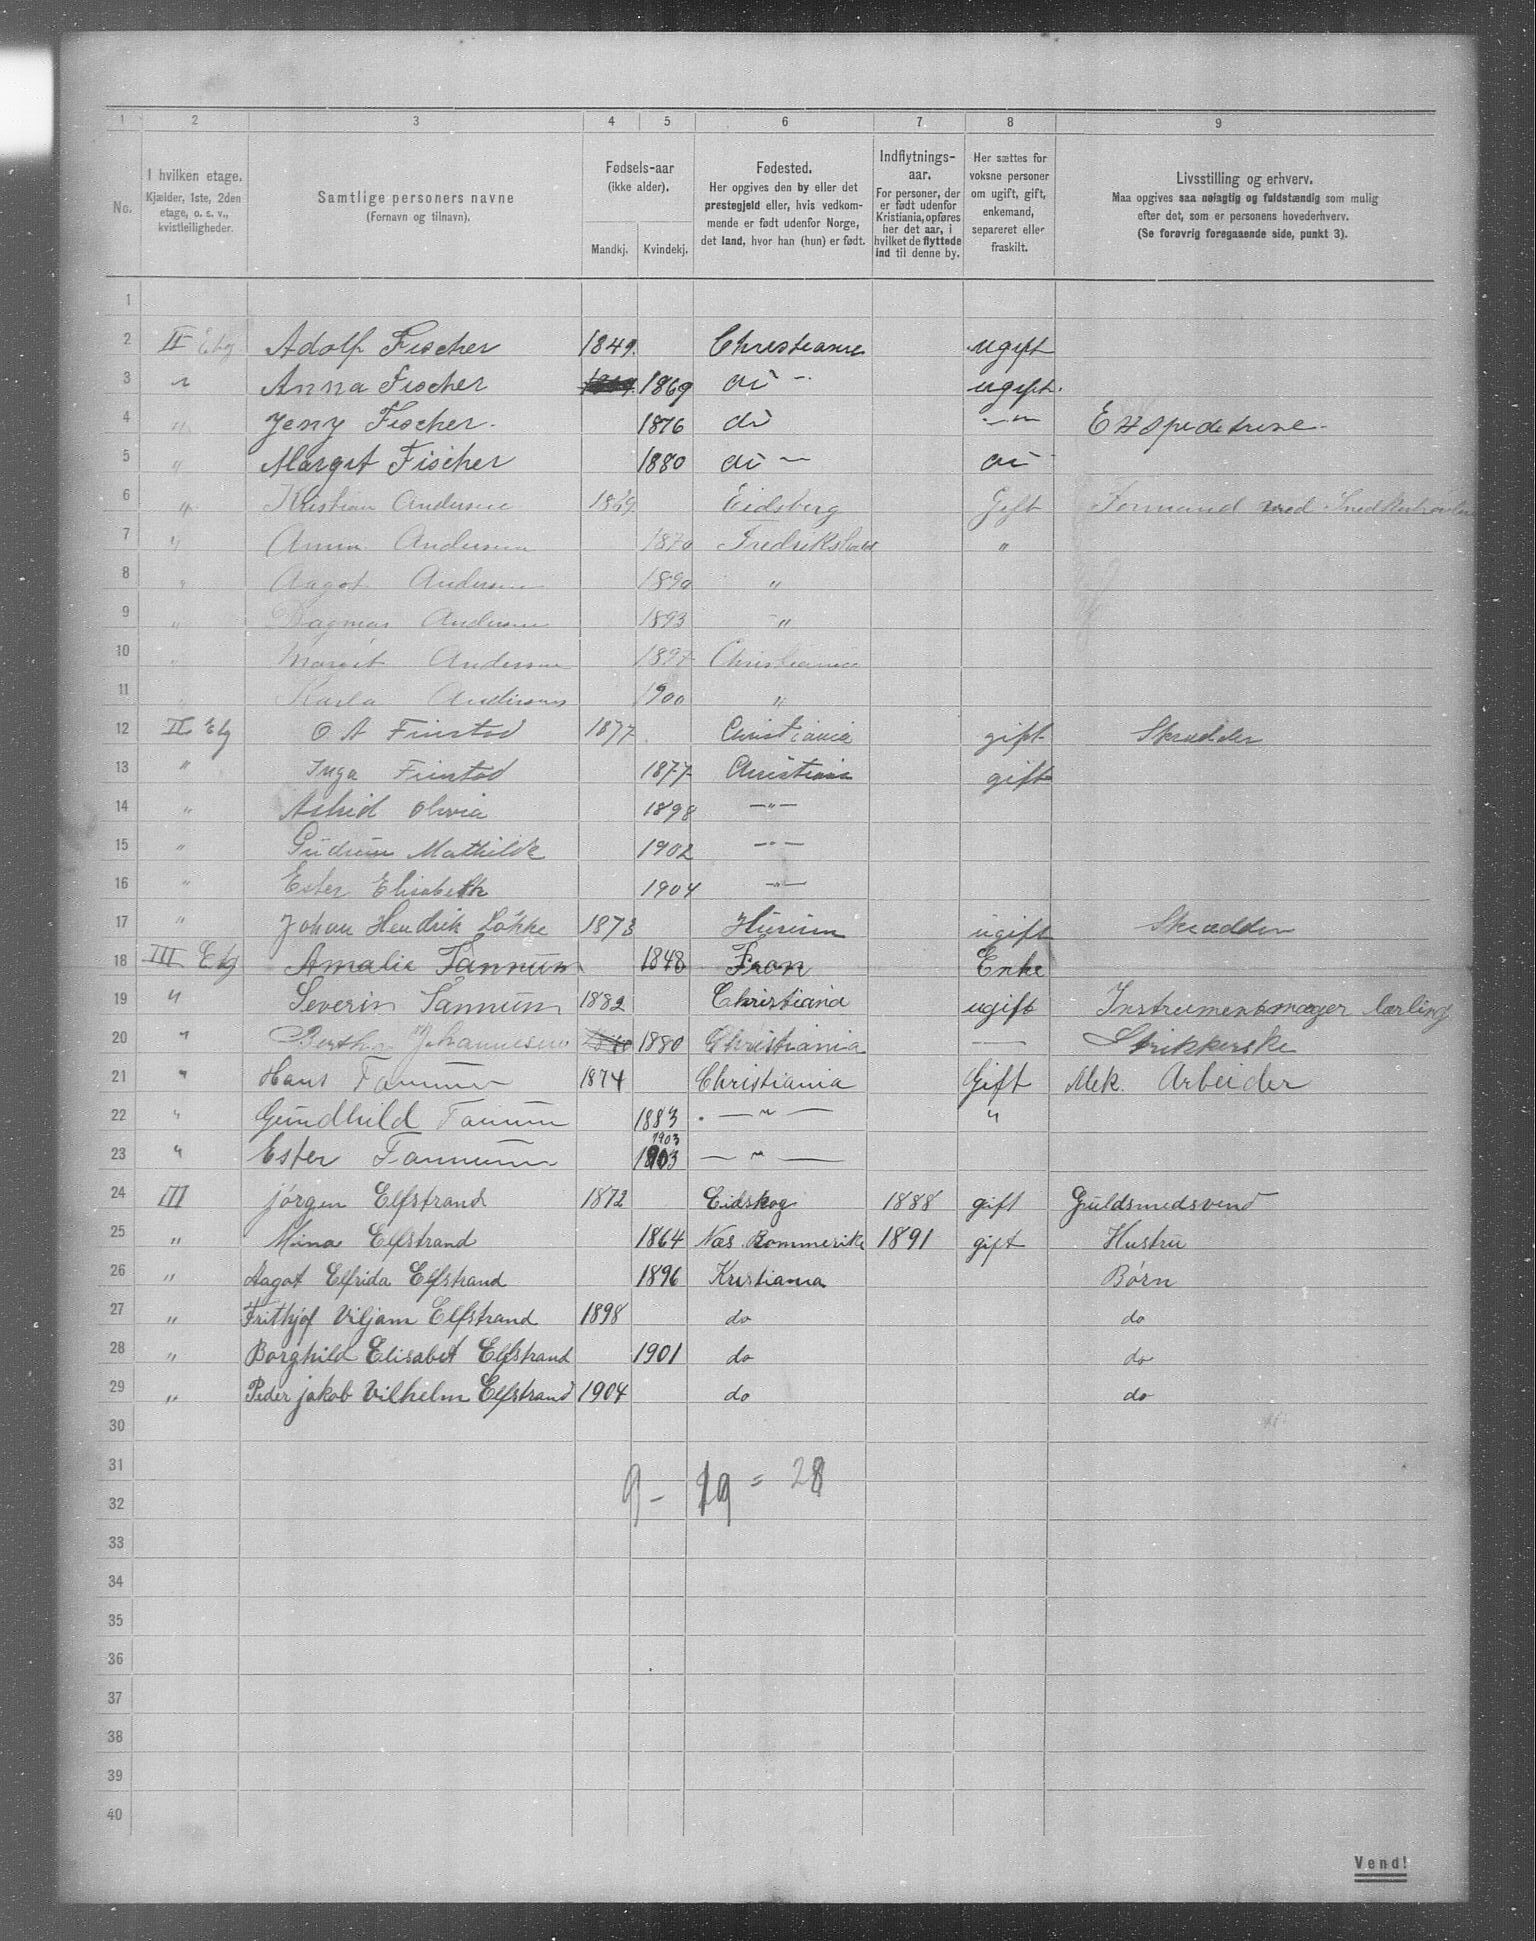 1 2 3 4 5 6 7 8 9
No.
I hvilken etage.
Kjælder, 1ste, 2den
etage, o. s. v.,
kvistleiligheder.
Samtlige personers navne
(Fornavn og tilnavn).
Fødsels-aar
(ikke alder).
Mandkj. Kvindekj.
Fødested.
Her opgives den by eller det
prestegjeld eller, hvis vedkom-
mende er født udenfor Norge,
det land, hvor han (hun) er født.
Indflytnings-
aar.
For personer, der
er født udenfor
Kristiania, opføres
her det aar, i
hvilket de flyttede
ind til denne by.
Her sættes for
voksne personer
om ugift, gift,
enkemand,
separeret eller
fraskilt.
Livsstilling og erhverv.
Maa opgives saa nøiagtig og fuldstændig som mulig
efter det, som er personens hovederhverv.
(Se forøvrig foregaaende side, punkt 3).
1
2 II Etg Adolf Fischer 1849. Christiania ugift
3 " Anna Fischer 1869 do — ugift.
4 " Jeny Fischer. 1876 do — " — Exspeditrise.
5 " Margit Fischer 1880 do — do
6 " Kristian Andersen 1869 Eidsberg Gift Formand ved
7 " Anna Andersen 1870 Fredrikshald "
8 " Aagot Andersen 1890 "
9 " Dagmar Andersen 1893 "
10 " Margit Andersen 1897 Christiania
11 " Karla Andersen 1900 "
12 II Etg O A Finstad 1877 Christiania gift Skrædder
13 " Inga Finstad 1877 Christiania gift
14 " Astrid Olivia 1898 — " —
15 " Gudrun Mathilde 1902 — " —
16 " Ester Elisabeth 1904 — " —
17 " Johan Hendrik Løkke 1873 Hurum ugift Skrædder
18 III Etg Amalie Tannum 1848 Fron Enke
19 " Severin Tannum 1882 Christiania ugift Instrumentmager lærling
20 " Berthe Johannesen 1880 Christiania — Strikkerske
21 " Hans Tannum 1874 Christiania Gift Mek. Arbeider
22 " Gundhild Tannum 1883 — " — "
23 " Ester Tannum 1903 1903 — " —
24 III Jørgen Elfstrand 1872 Eidskog 1888 gift Guldsmedsvend
25 " Mina Elfstrand 1864 Næs Rommerike 1891 gift Hustru
26 " Aagot Elfrida Elfstrand 1896 Kristiania Børn
27 " Frithjof Viljam Elfstrand 1898 do do
28 " Borghild Elisabet Elfstrand 1901 do do
29 " Peder Jakob Vilhelm Elfstrand 1904 do do
30
31
9 - 19 = 28
32
33
34
35
36
37
38
39
40
Vend!